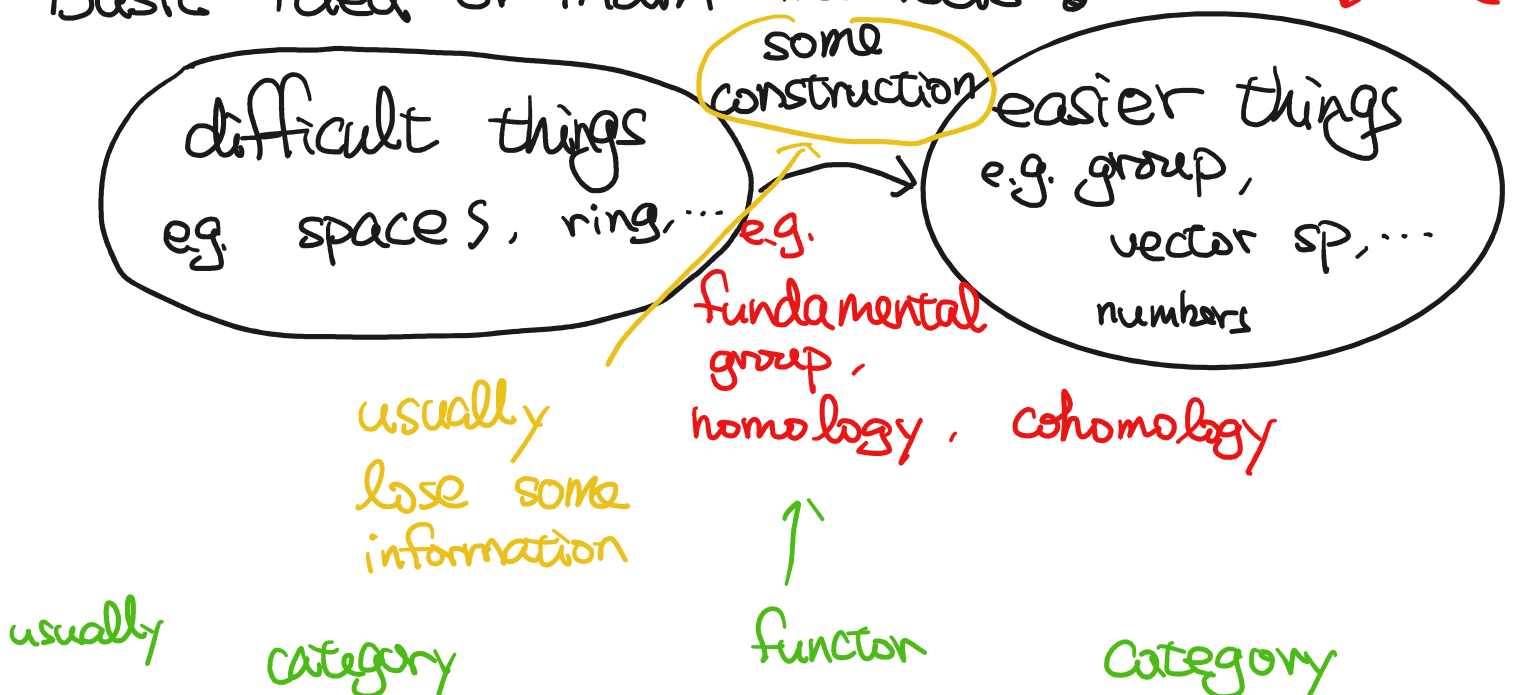 some
construction
difficult things
e.g. spaces, ring, ...
easier things
e.g. group,
vector sp, ...
numbers
e.g.
fundamental
group,
homology, cohomology
usually
lose some
information
usually category functor category